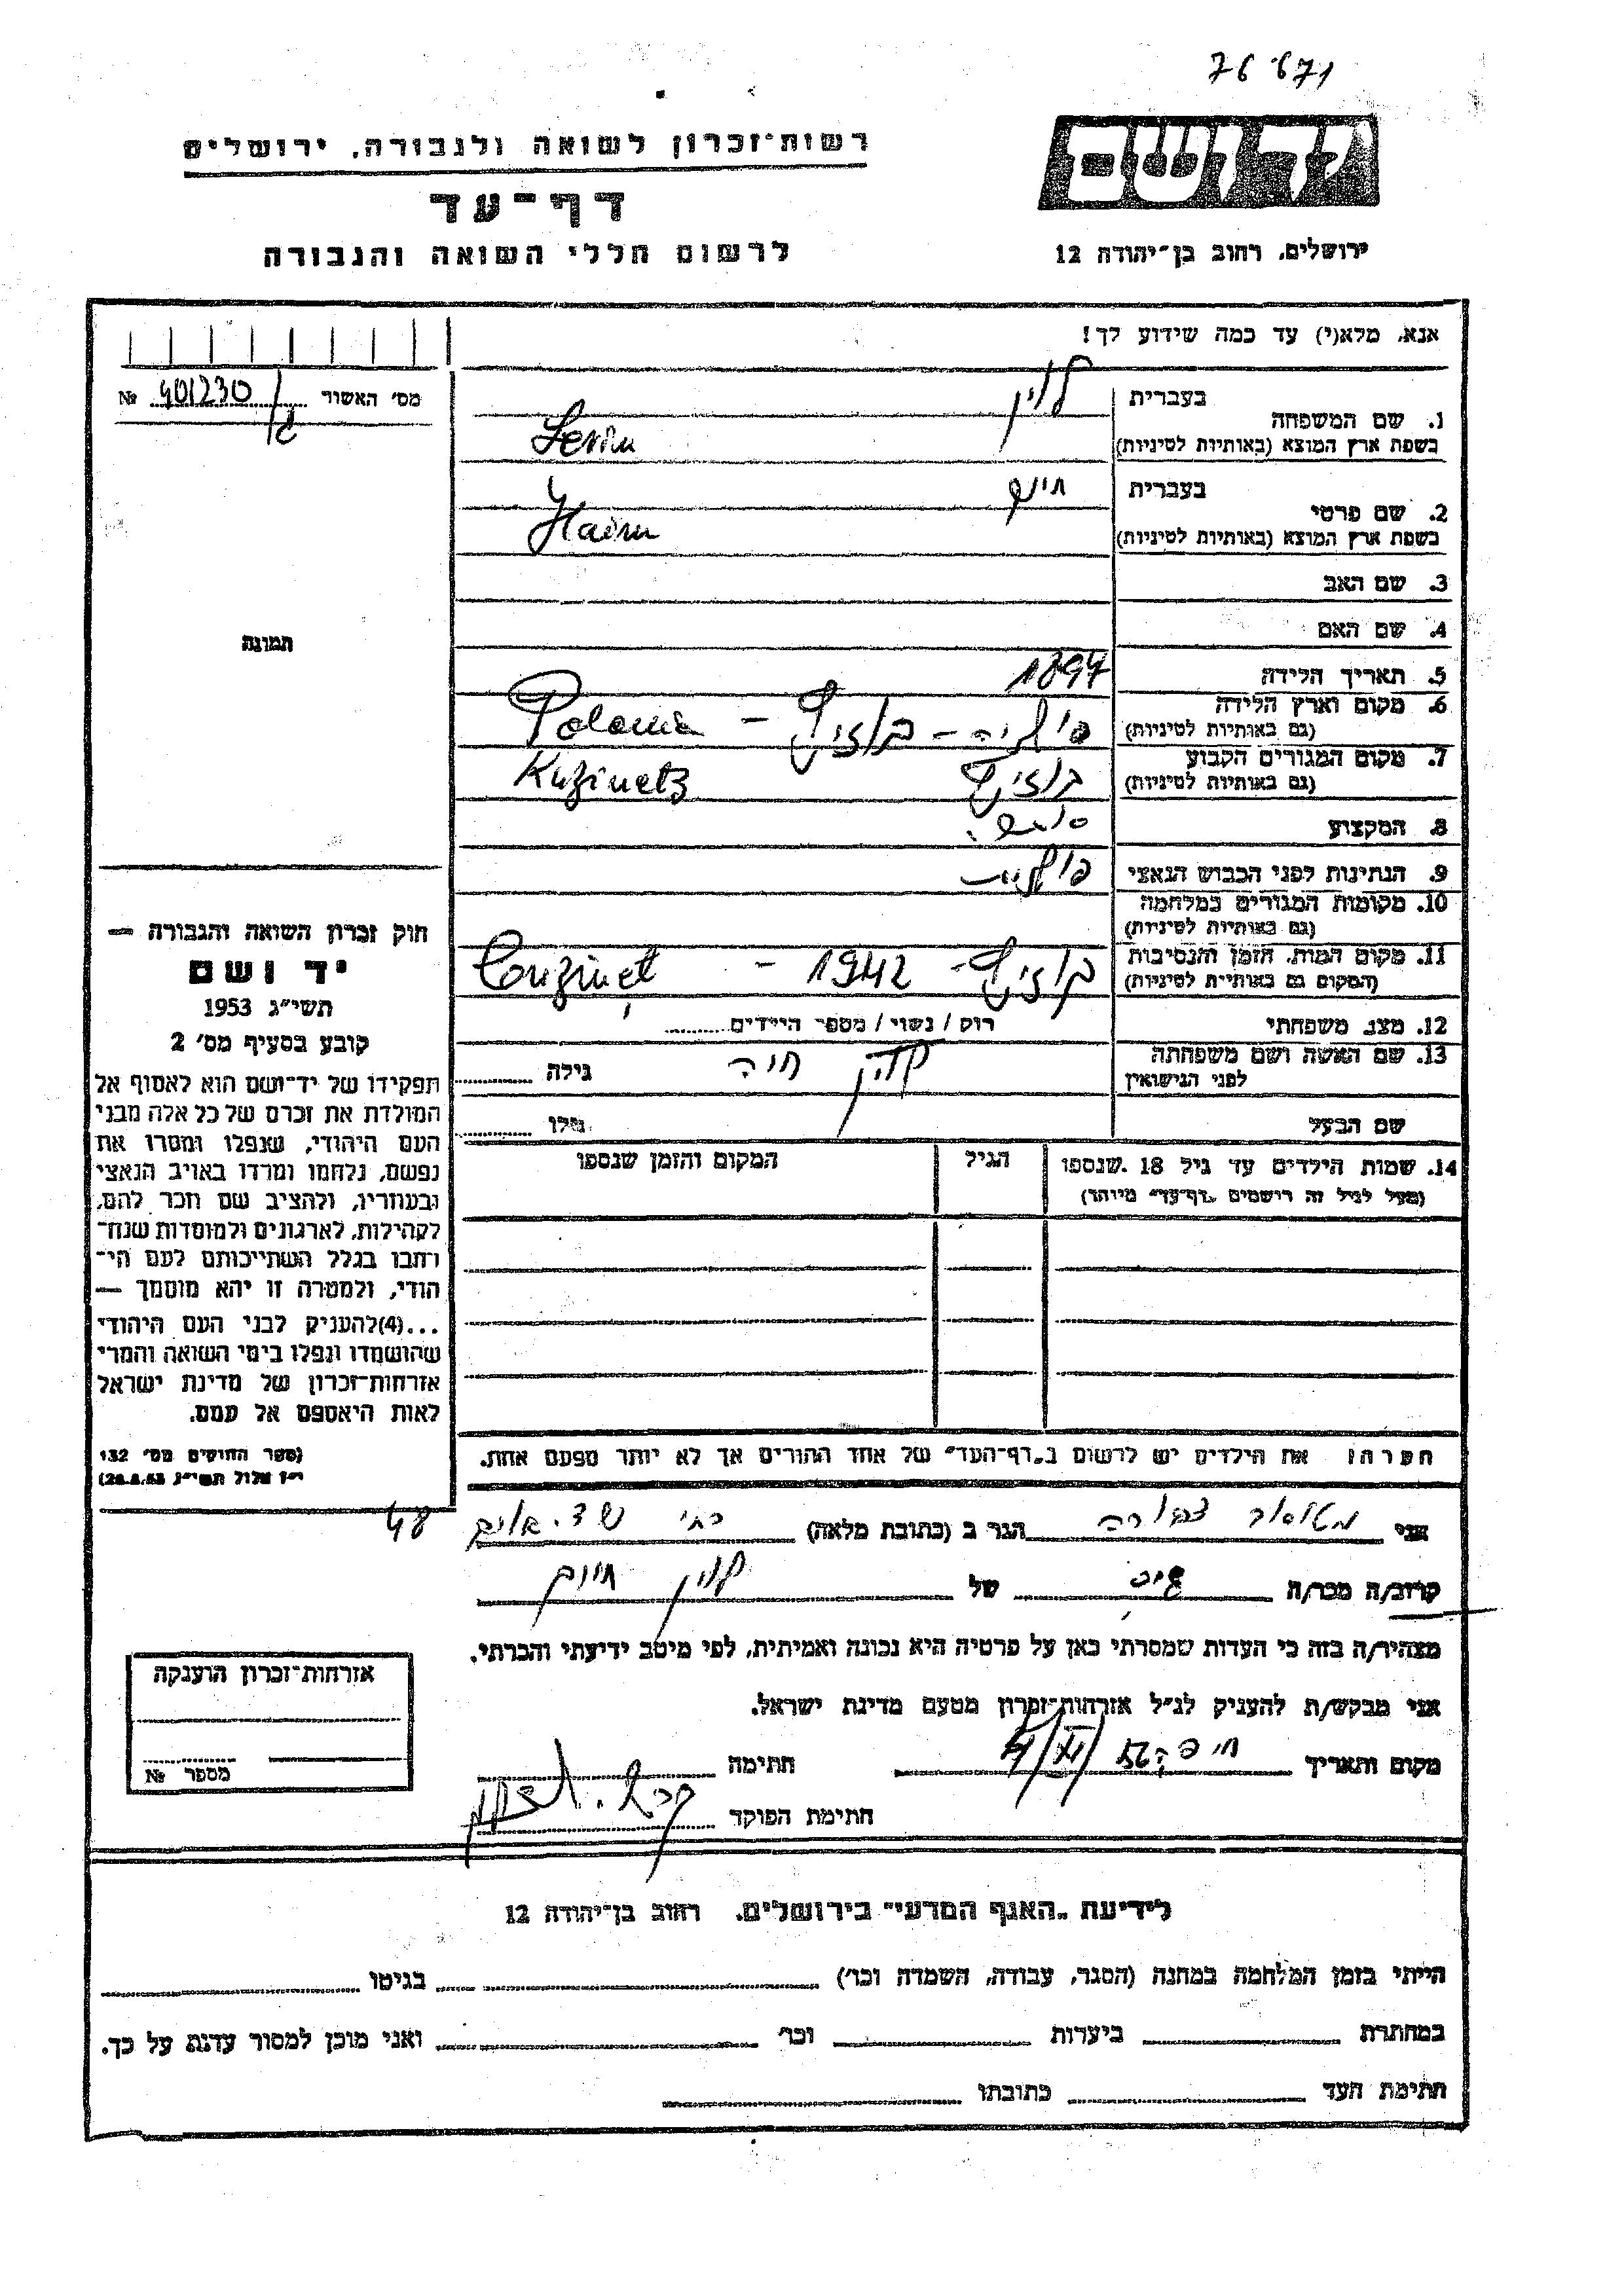 76 671
רשות־זכרון לשואה ולגבורה, ירושלים
דף־עד
לרשום חללי השואה והגבורה
יד ושם
ירושלים, רחוב בן־יהודה 12
אנא, מלא(י) עד כמה שידוע לך!
מס׳ האשור № 401230
1. שם המשפחה
בעברית לוין
בשפת ארץ המוצא (באותיות לטיניות) Levin
2. שם פרטי
בעברית חיים
בשפת ארץ המוצא (באותיות לטיניות) Haim
3. שם האב
4. שם האם
תמונה
5. תאריך הלידה 1897
6. מקום וארץ הלידה
(גם באותיות לטיניות) פולניה - Polania -
7. מקום המגורים הקבוע
(גם באותיות לטיניות) Kuzinetz
8. המקצוע סוחר
9. הנתינות לפני הכבוש הנאצי פולנית
10. מקומות המגורים במלחמה
(גם באותיות לטיניות)
11. מקום המות, הזמן והנסיבות
(המקום גם באותיות לטיניות) - 1942 - Couzinet
12. מצב משפחתי רוק / נשוי / מספר הילדים
13. שם האשה ושם משפחתה
לפני הנישואין קהן חיה גילה
שם הבעל גילו
14. שמות הילדים עד גיל 18 שנספו
(מעל לגיל זה רושמים „דף־עד” מיוחד)
הגיל
המקום והזמן שנספו
חוק זכרון השואה והגבורה —
יד ושם
תשי״ג 1953
קובע בסעיף מס׳ 2
תפקידו של יד־ושם הוא לאסוף אל
המולדת את זכרם של כל אלה מבני
העם היהודי, שנפלו ומסרו את
נפשם, נלחמו ומרדו באויב הנאצי
ובעוזריו, ולהציב שם וזכר להם,
לקהילות, לארגונים ולמוסדות שנח־
רחבו בגלל השתייכותם לעם הי־
הודי, ולמטרה זו יהא מוסמך —
...(4)להעניק לבני העם היהודי
שהושמדו ונפלו בימי השואה והמרי
אזרחות־זכרון של מדינת ישראל
לאות היאספם אל עמם.
(ספר החוקים מס׳ 132
י״ז אלול תשי״ג 28.8.53)
הערה: את הילדים יש לרשום ב„דף־העד” של אחד ההורים אך לא יותר מפעם אחת.
אני הגר ב (כתובת מלאה) 48
קרוב/ה מכר/ה של לוין חיים
מצהיר/ה בזה כי העדות שמסרתי כאן על פרטיה היא נכונה ואמיתית, לפי מיטב ידיעתי והכרתי.
אני מבקש/ת להעניק לנ״ל אזרחות־זכרון מטעם מדינת ישראל.
מקום ותאריך חתימה
חתימת הפוקד
אזרחות־זכרון הוענקה
מספר №
לידיעת „האגף המדעי” בירושלים, רחוב בן־יהודה 12
הייתי בזמן המלחמה במחנה (הסגר, עבודה, השמדה וכו׳) בגיטו
במחתרת ביערות וכו׳ ואני מוכן למסור עדות על כך.
חתימת העד כתובתו